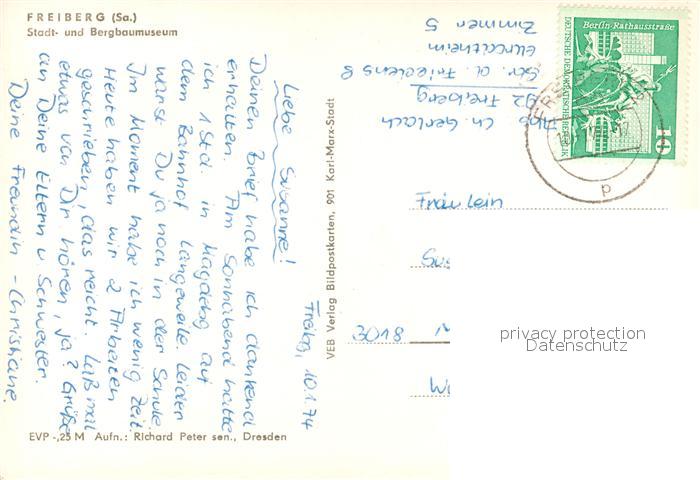 FREIBERG (Sa.)
Stadt- und Bergbaumuseum
Freiberg, 10.1.74
Liebe Susanne!
Deinen Brief habe ich dankend
erhalten. Am Sonnabend hatte
ich 1 Std. in Magdebg auf
dem Bahnhof Langeweile. Leider
warst Du ja noch in der Schule.
Im Moment habe ich wenig Zeit.
Heute haben wir 2 Arbeiten
geschrieben, das reicht. Laß mal
etwas von Dir hören, ja? Grüße
an Deine Eltern u Schwester.
Deine Freundin - Christiane.
EVP -,25 M Aufn.: Richard Peter sen., Dresden
VEB Verlag Bildpostkarten, 901 Karl-Marx-Stadt
Abs. Ch. Gerlach
92 Freiberg
Str. d. Friedens 8
Zimmer 5
Berlin-Rathausstraße
DEUTSCHE DEMOKRATISCHE REPUBLIK
10
p
Fräulein
3018
privacy protection
Datenschutz